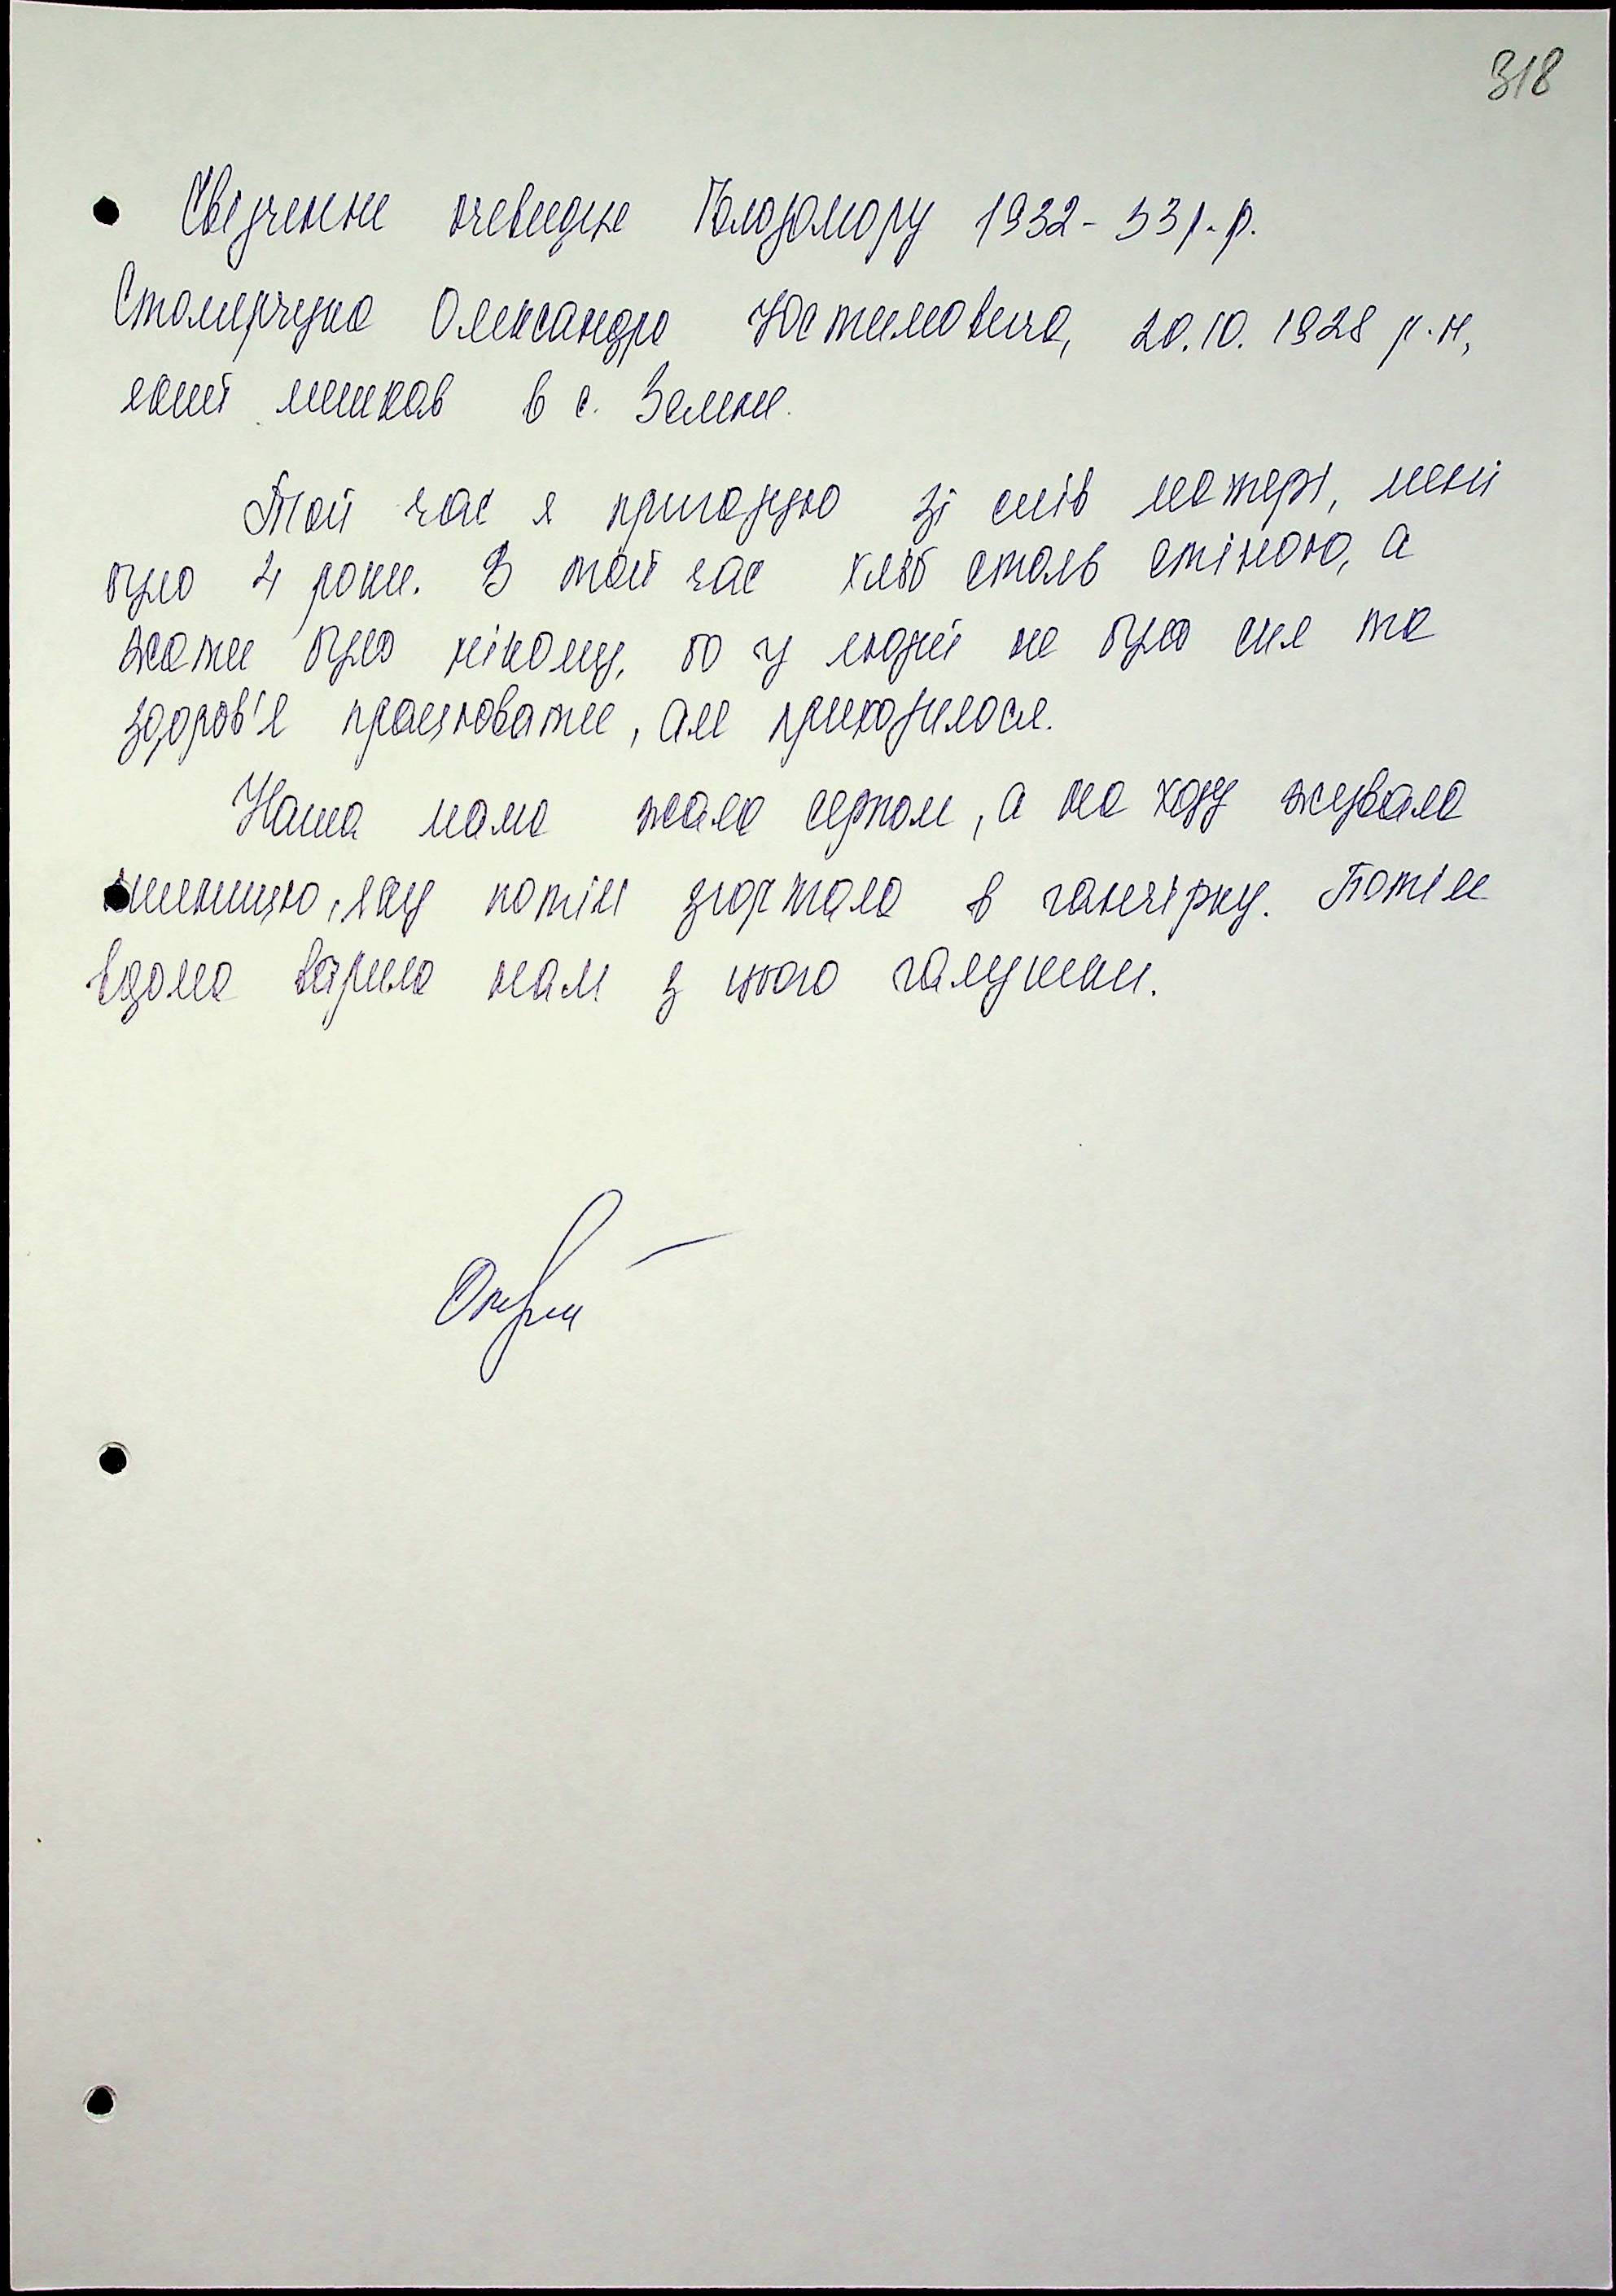 318
Свідчення очевидця Голодомору 1932-33 р.р.
Столярчука Олександра Юстимовича, 20.10.1928 р.н,
який мешкав в с. Зелики.
Той час я пригадую зі слів матері, мені
було 4 роки. В той час хліб стояв стіною, а
жати було нікому, бо у людей не було сил та
здоров'я працювати, але приходилося.
Наша мама жала серпом, а на ходу жувала
пшеницю, яку потім згортала в ганчірку. Потім
вдома варила нам з цього галушки.